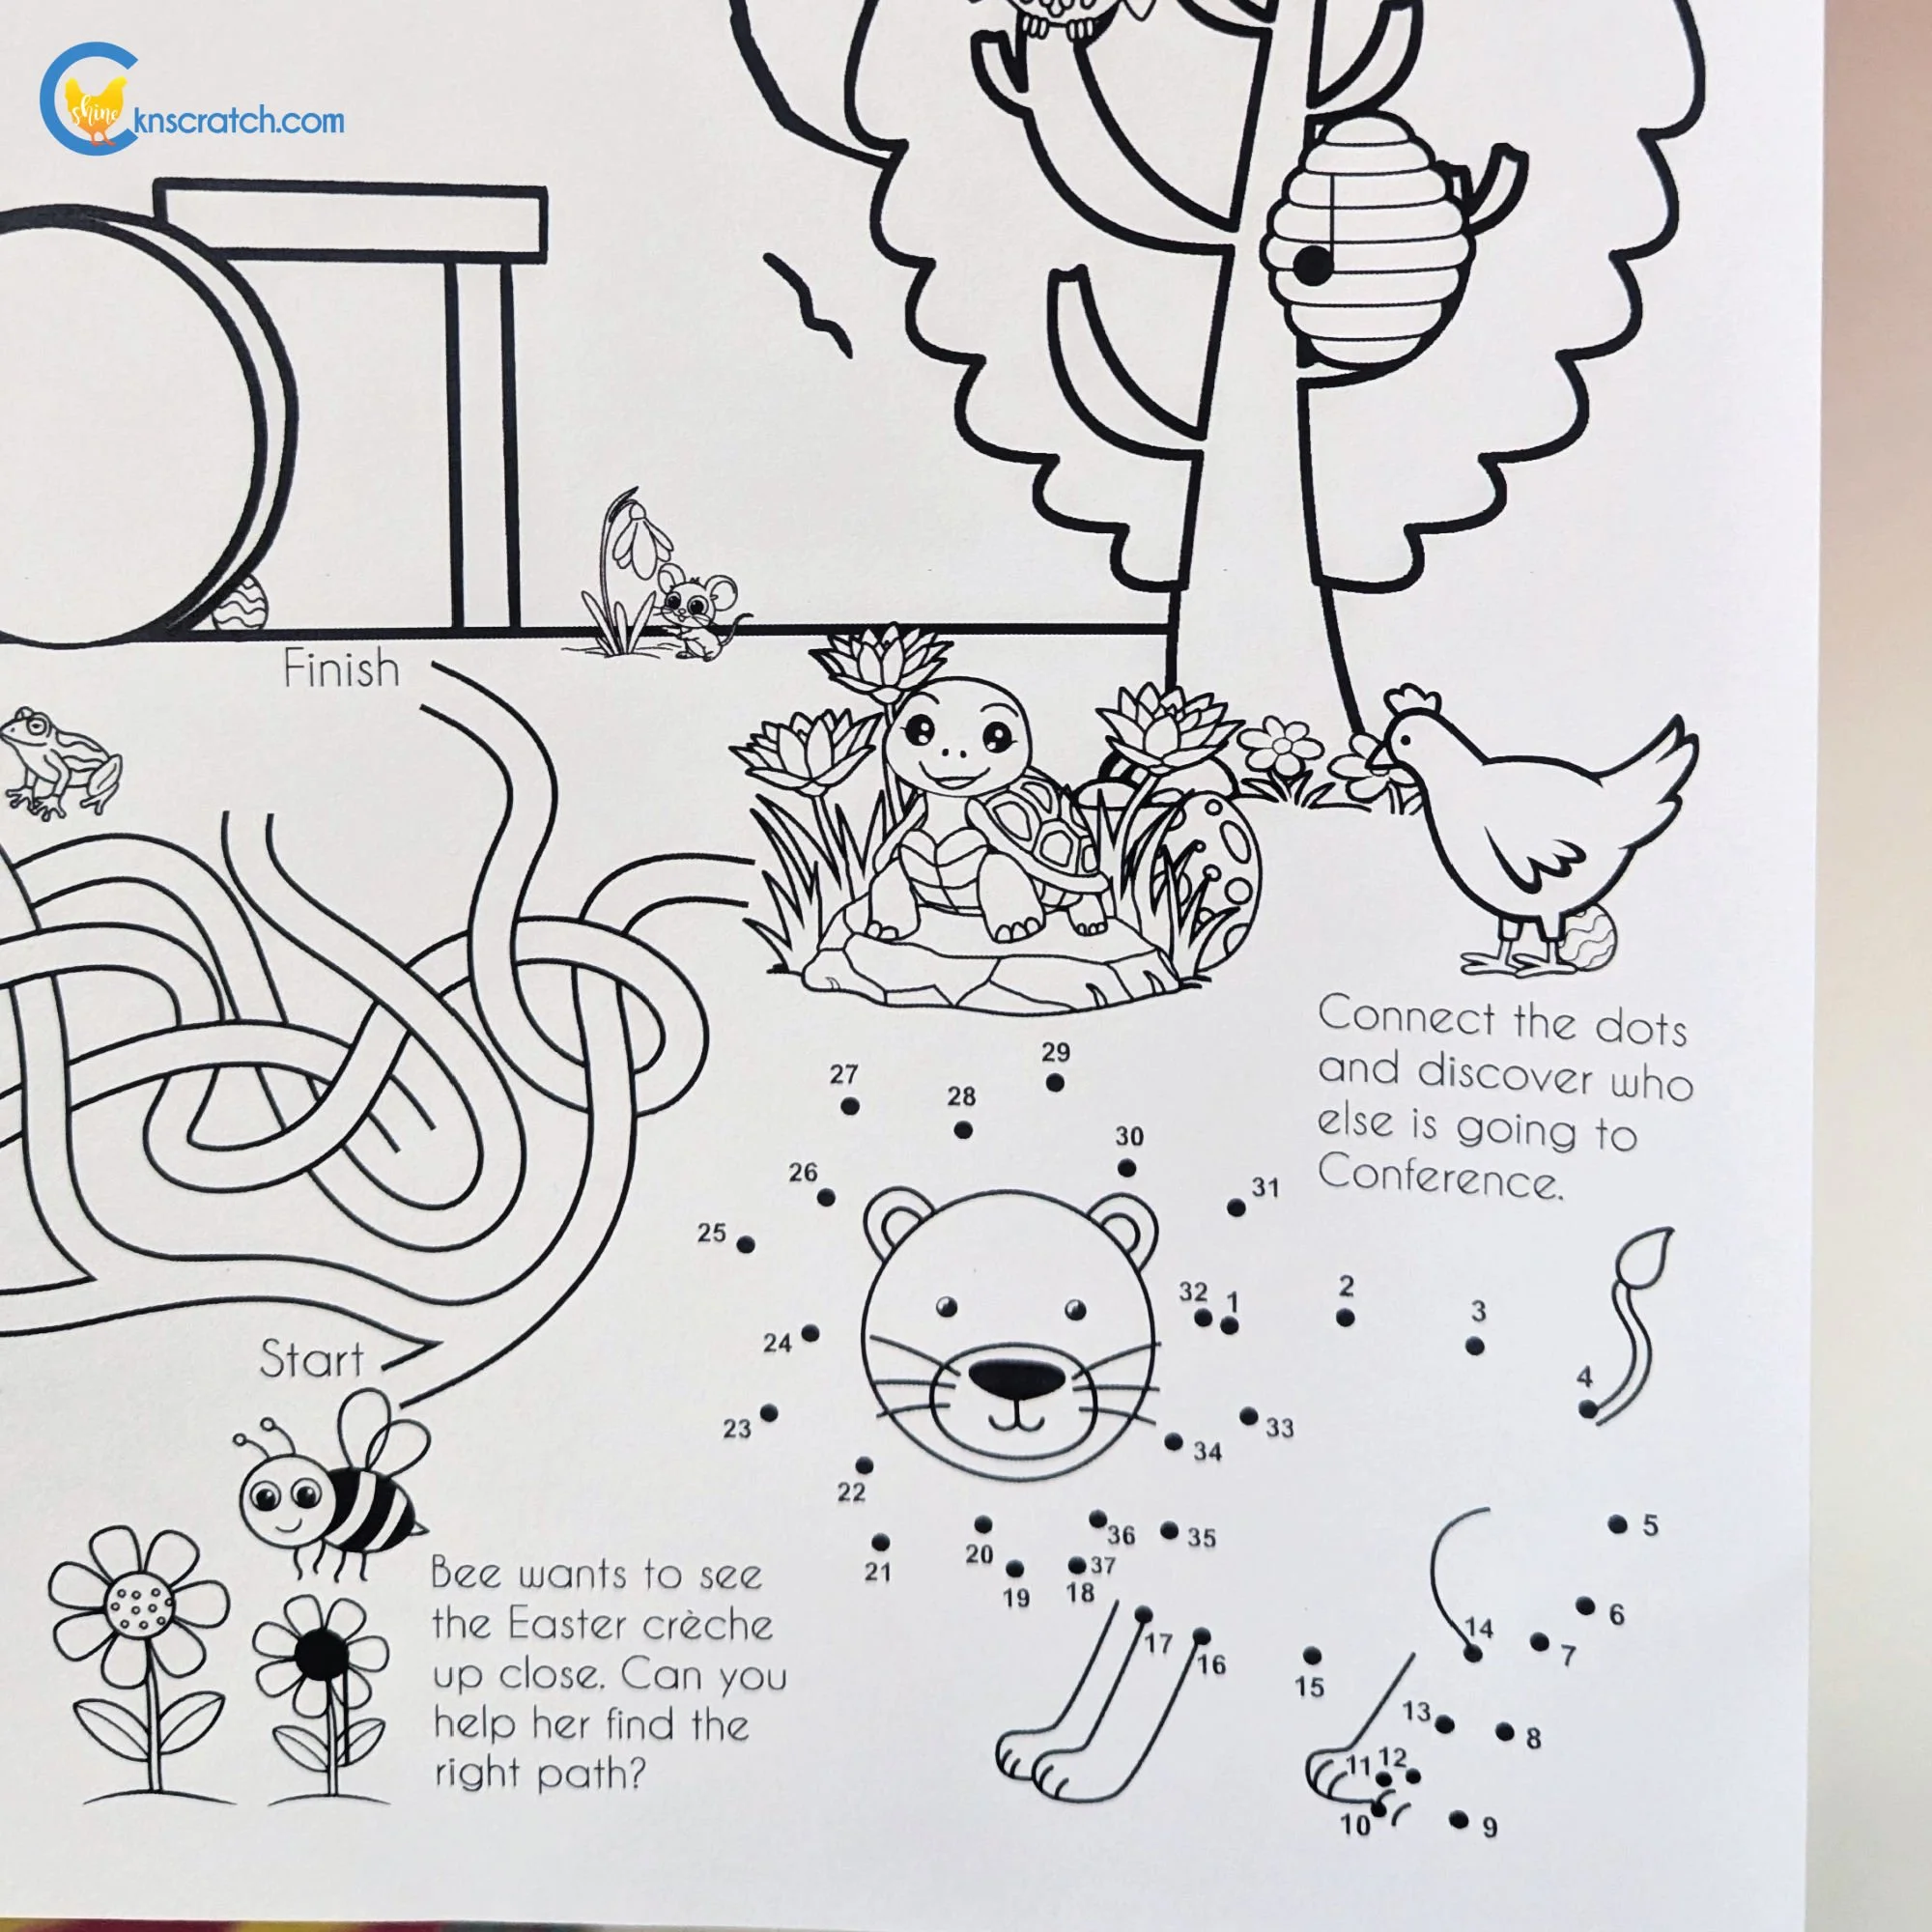 shine
knscratch.com
Finish
Connect the dots
and discover who
else is going to
Conference.
29
27
28
30
26
31
25
32
1
2
3
24
4
23
33
34
22
36
35
5
20
21
37
19
18
6
14
17
7
16
15
13
8
11
12
10
9
Start
Bee wants to see
the Easter crèche
up close. Can you
help her find the
right path?